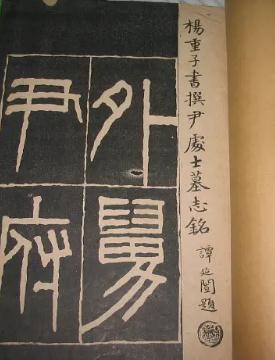 楊重子書撰尹處士墓志銘
譚延闓題
外舅
尹府